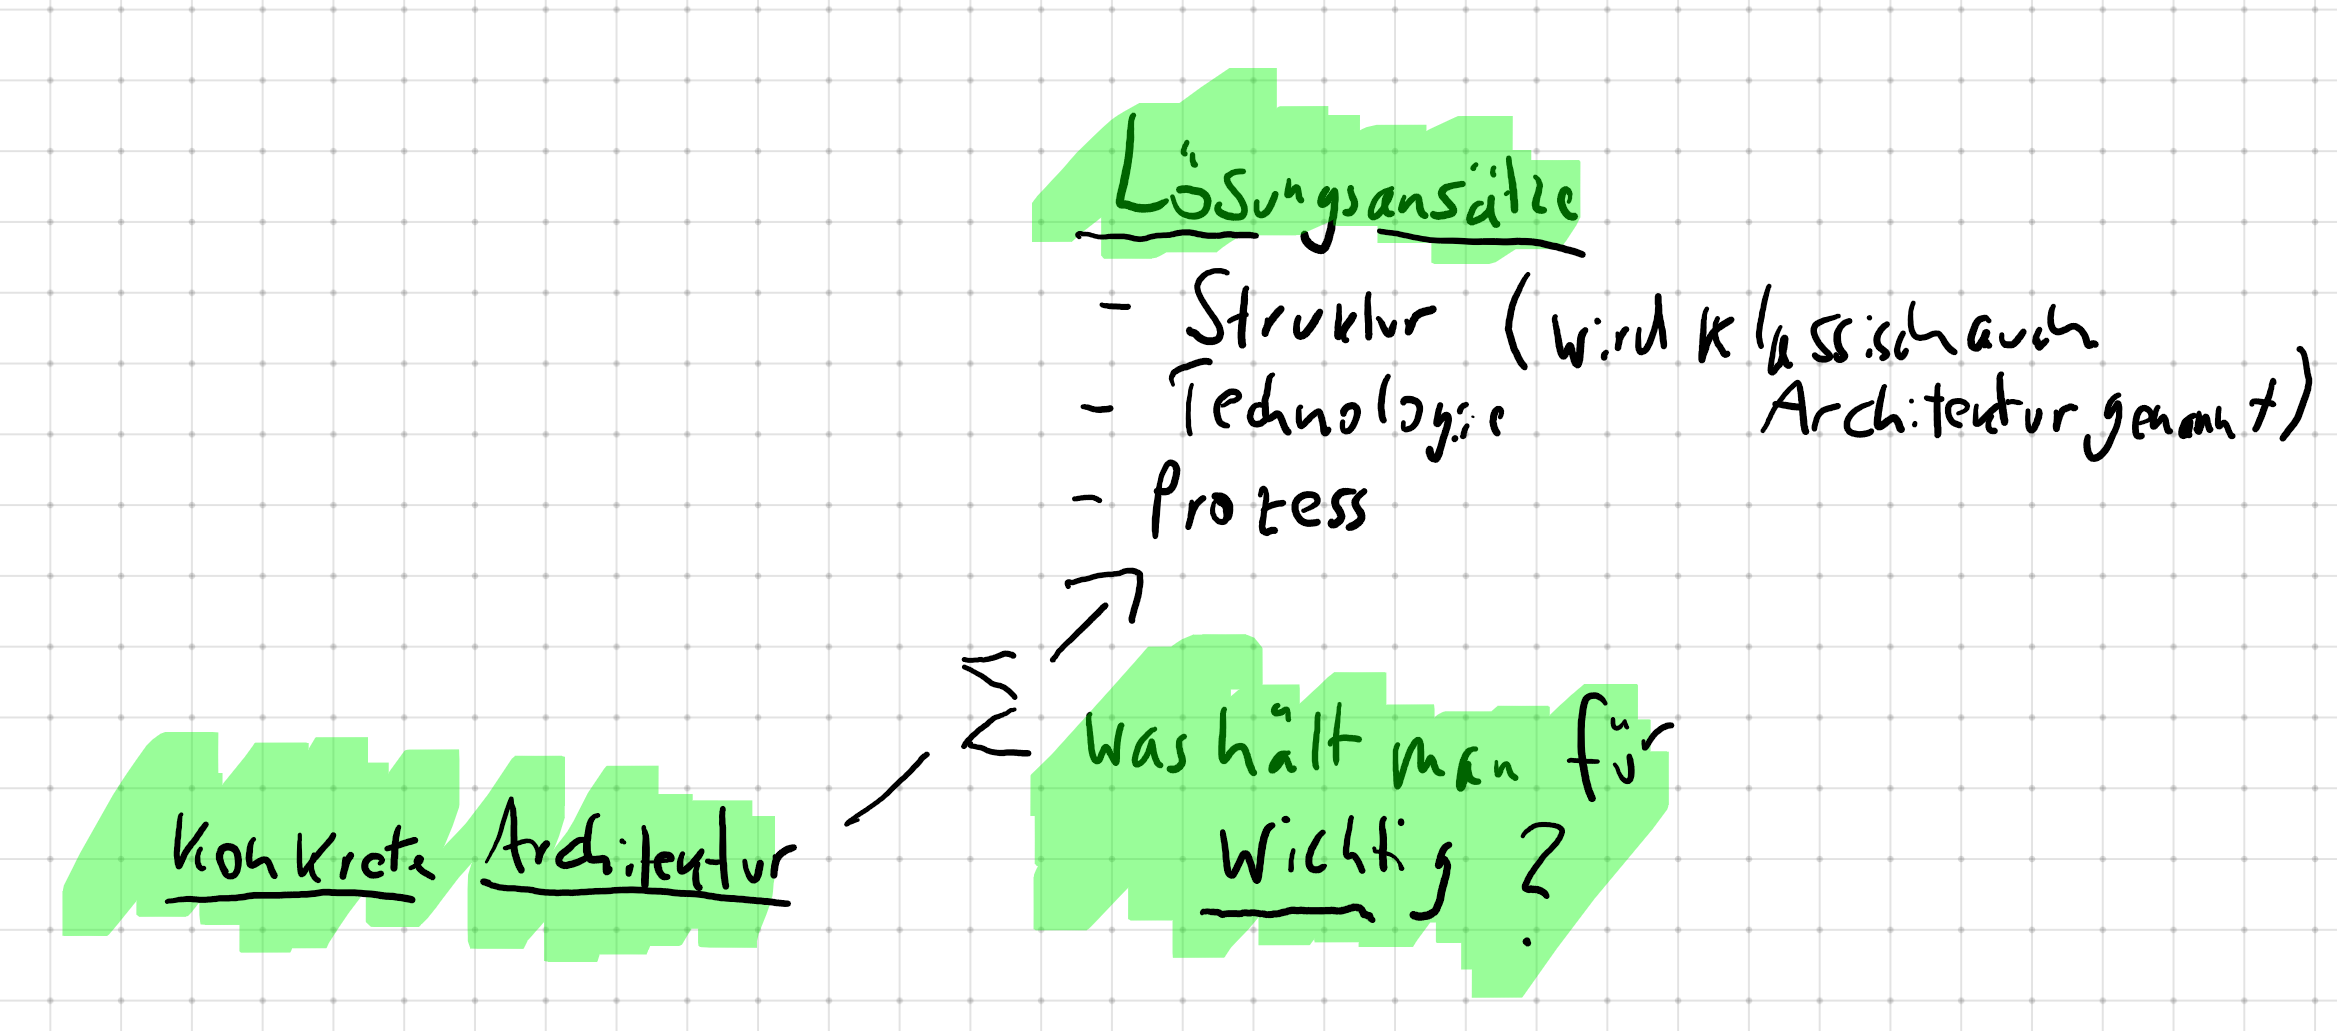 Lösungsansätze
- Struktur (wird klassisch auch
Architektur genannt)
- Technologie
- Prozess
Σ
Was hält man für
wichtig?
Konkrete Architektur